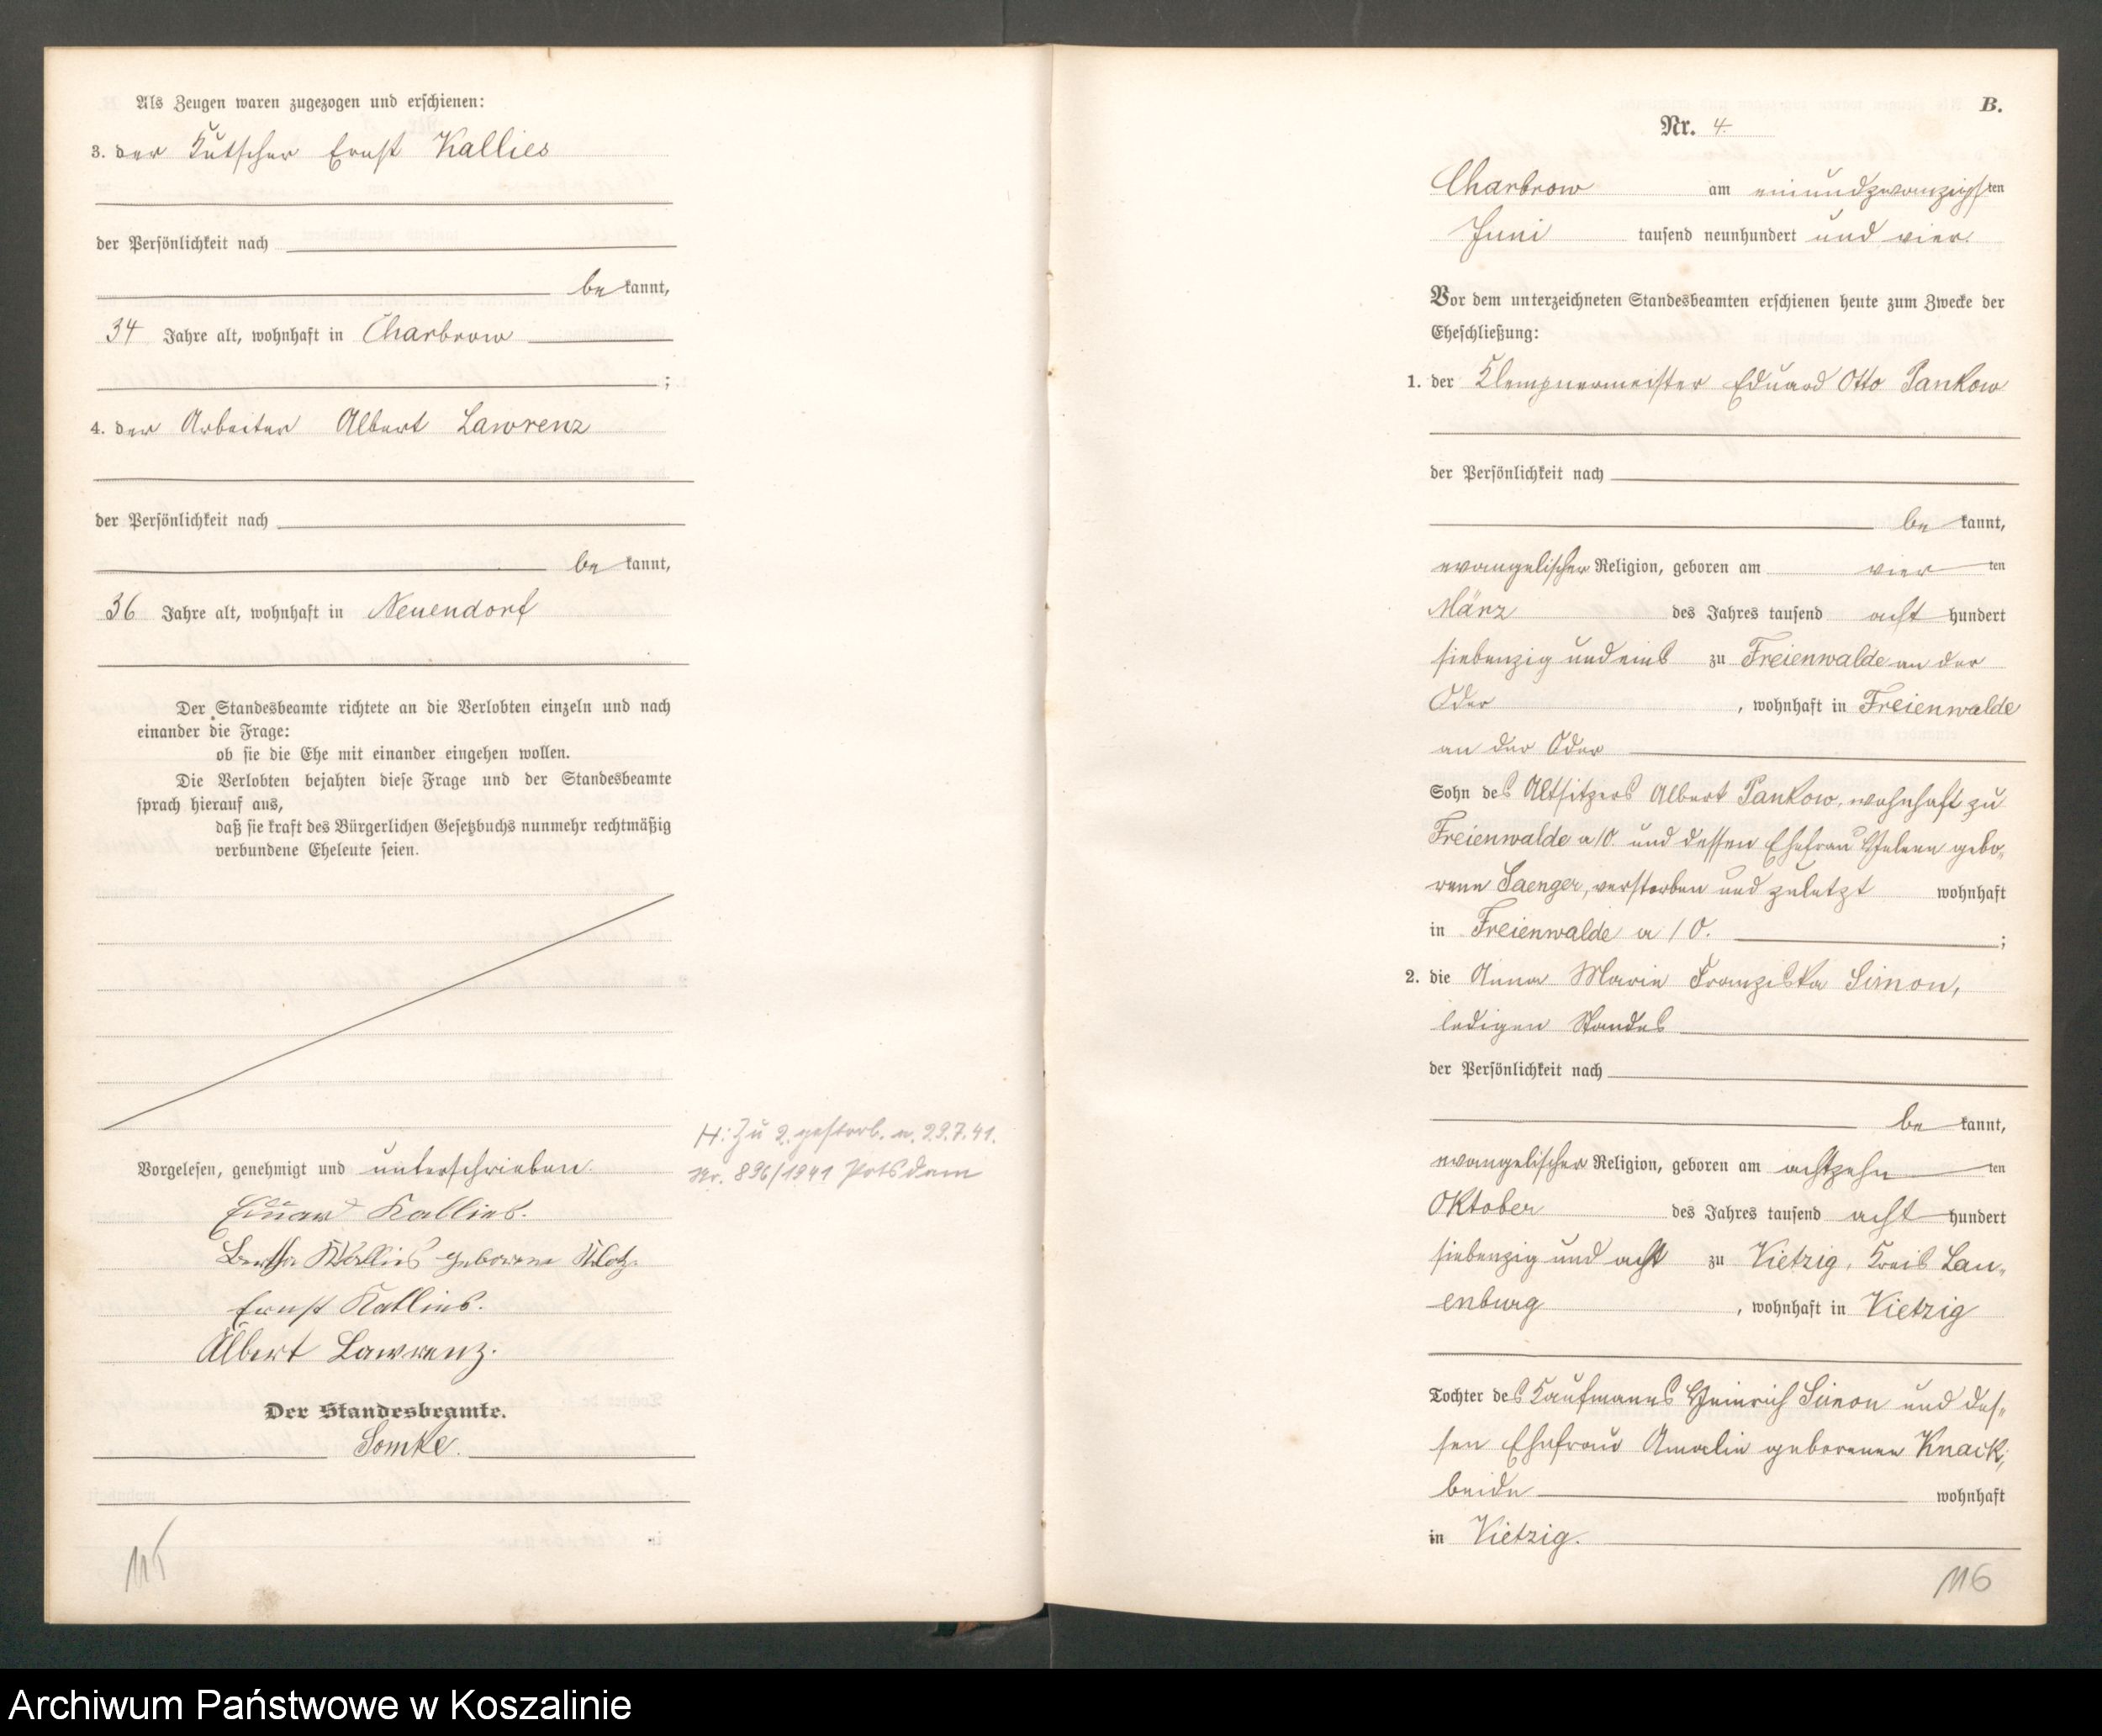 Als Zeugen waren zugezogen und erschienen:
3. der Kutscher Ernst Kallies
der Persönlichkeit nach
be kannt,
34 Jahre alt, wohnhaft in Charbrow
;
4. der Arbeiter Albert Lawrenz
der Persönlichkeit nach
be kannt,
36 Jahre alt, wohnhaft in Neuendorf
Der Standesbeamte richtete an die Verlobten einzeln und nach
einander die Frage:
ob sie die Ehe mit einander eingehen wollen.
Die Verlobten bejahten diese Frage und der Standesbeamte
sprach hierauf aus,
daß sie kraft des Bürgerlichen Gesetzbuchs nunmehr rechtmäßig
verbundene Eheleute seien.
Vorgelesen, genehmigt und unterschrieben.
Eduard Kallies.
Bertha Kallies geborene Klotz
Ernst Kallies.
Albert Lawrenz.
Der Standesbeamte.
Somke.
H: Zu 2. gestorb. a. 29.7.41.
Nr. 896/1941 Potsdam
115
B.
Nr. 4.
Charbrow am einundzwanzigsten
Juni tausend neunhundert und vier.
Vor dem unterzeichneten Standesbeamten erschienen heute zum Zwecke der
Eheschließung:
1. der Klempnermeister Eduard Otto Pankow
der Persönlichkeit nach
be kannt,
evangelischer Religion, geboren am vier ten
März des Jahres tausend acht hundert
siebenzig und eins zu Freienwalde an der
Oder , wohnhaft in Freienwalde
an der Oder
Sohn des Altsitzers Albert Pankow, wohnhaft zu
Freienwalde a/O. und dessen Ehefrau Helene gebo-
rene Saenger, verstorben und zuletzt wohnhaft
in Freienwalde a/O. ;
2. die Anna Marie Franziska Simon,
ledigen Standes
der Persönlichkeit nach
be kannt,
evangelischer Religion, geboren am achtzehn ten
Oktober des Jahres tausend acht hundert
siebenzig und acht zu Vietzig, Kreis Lau-
enburg , wohnhaft in Vietzig
Tochter des Kaufmanns Heinrich Simon und des-
sen Ehefrau Amalie geborenen Knack,
beide wohnhaft
in Vietzig.
116
Archiwum Państwowe w Koszalinie